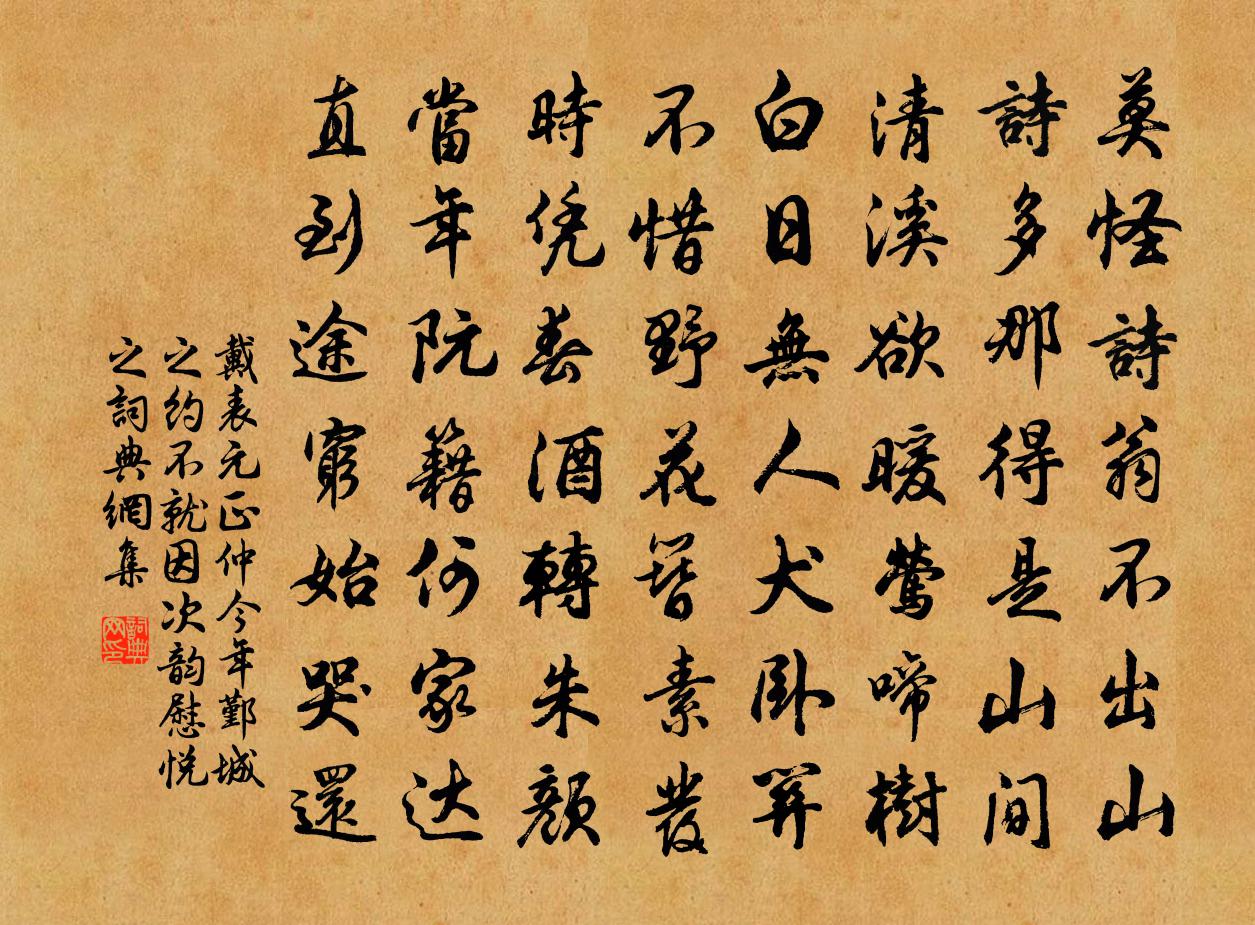 莫怪詩翁不出山
詩多那得是山間
清溪欲暖鶯啼樹
白日無人犬卧關
不惜野花簪素发
時凭春酒轉朱顔
當年阮籍何家达
直到途窮始哭還
戴表元正仲今年鄞城
之約不就因次韵慰悦
之詞典網集
詞典
网印